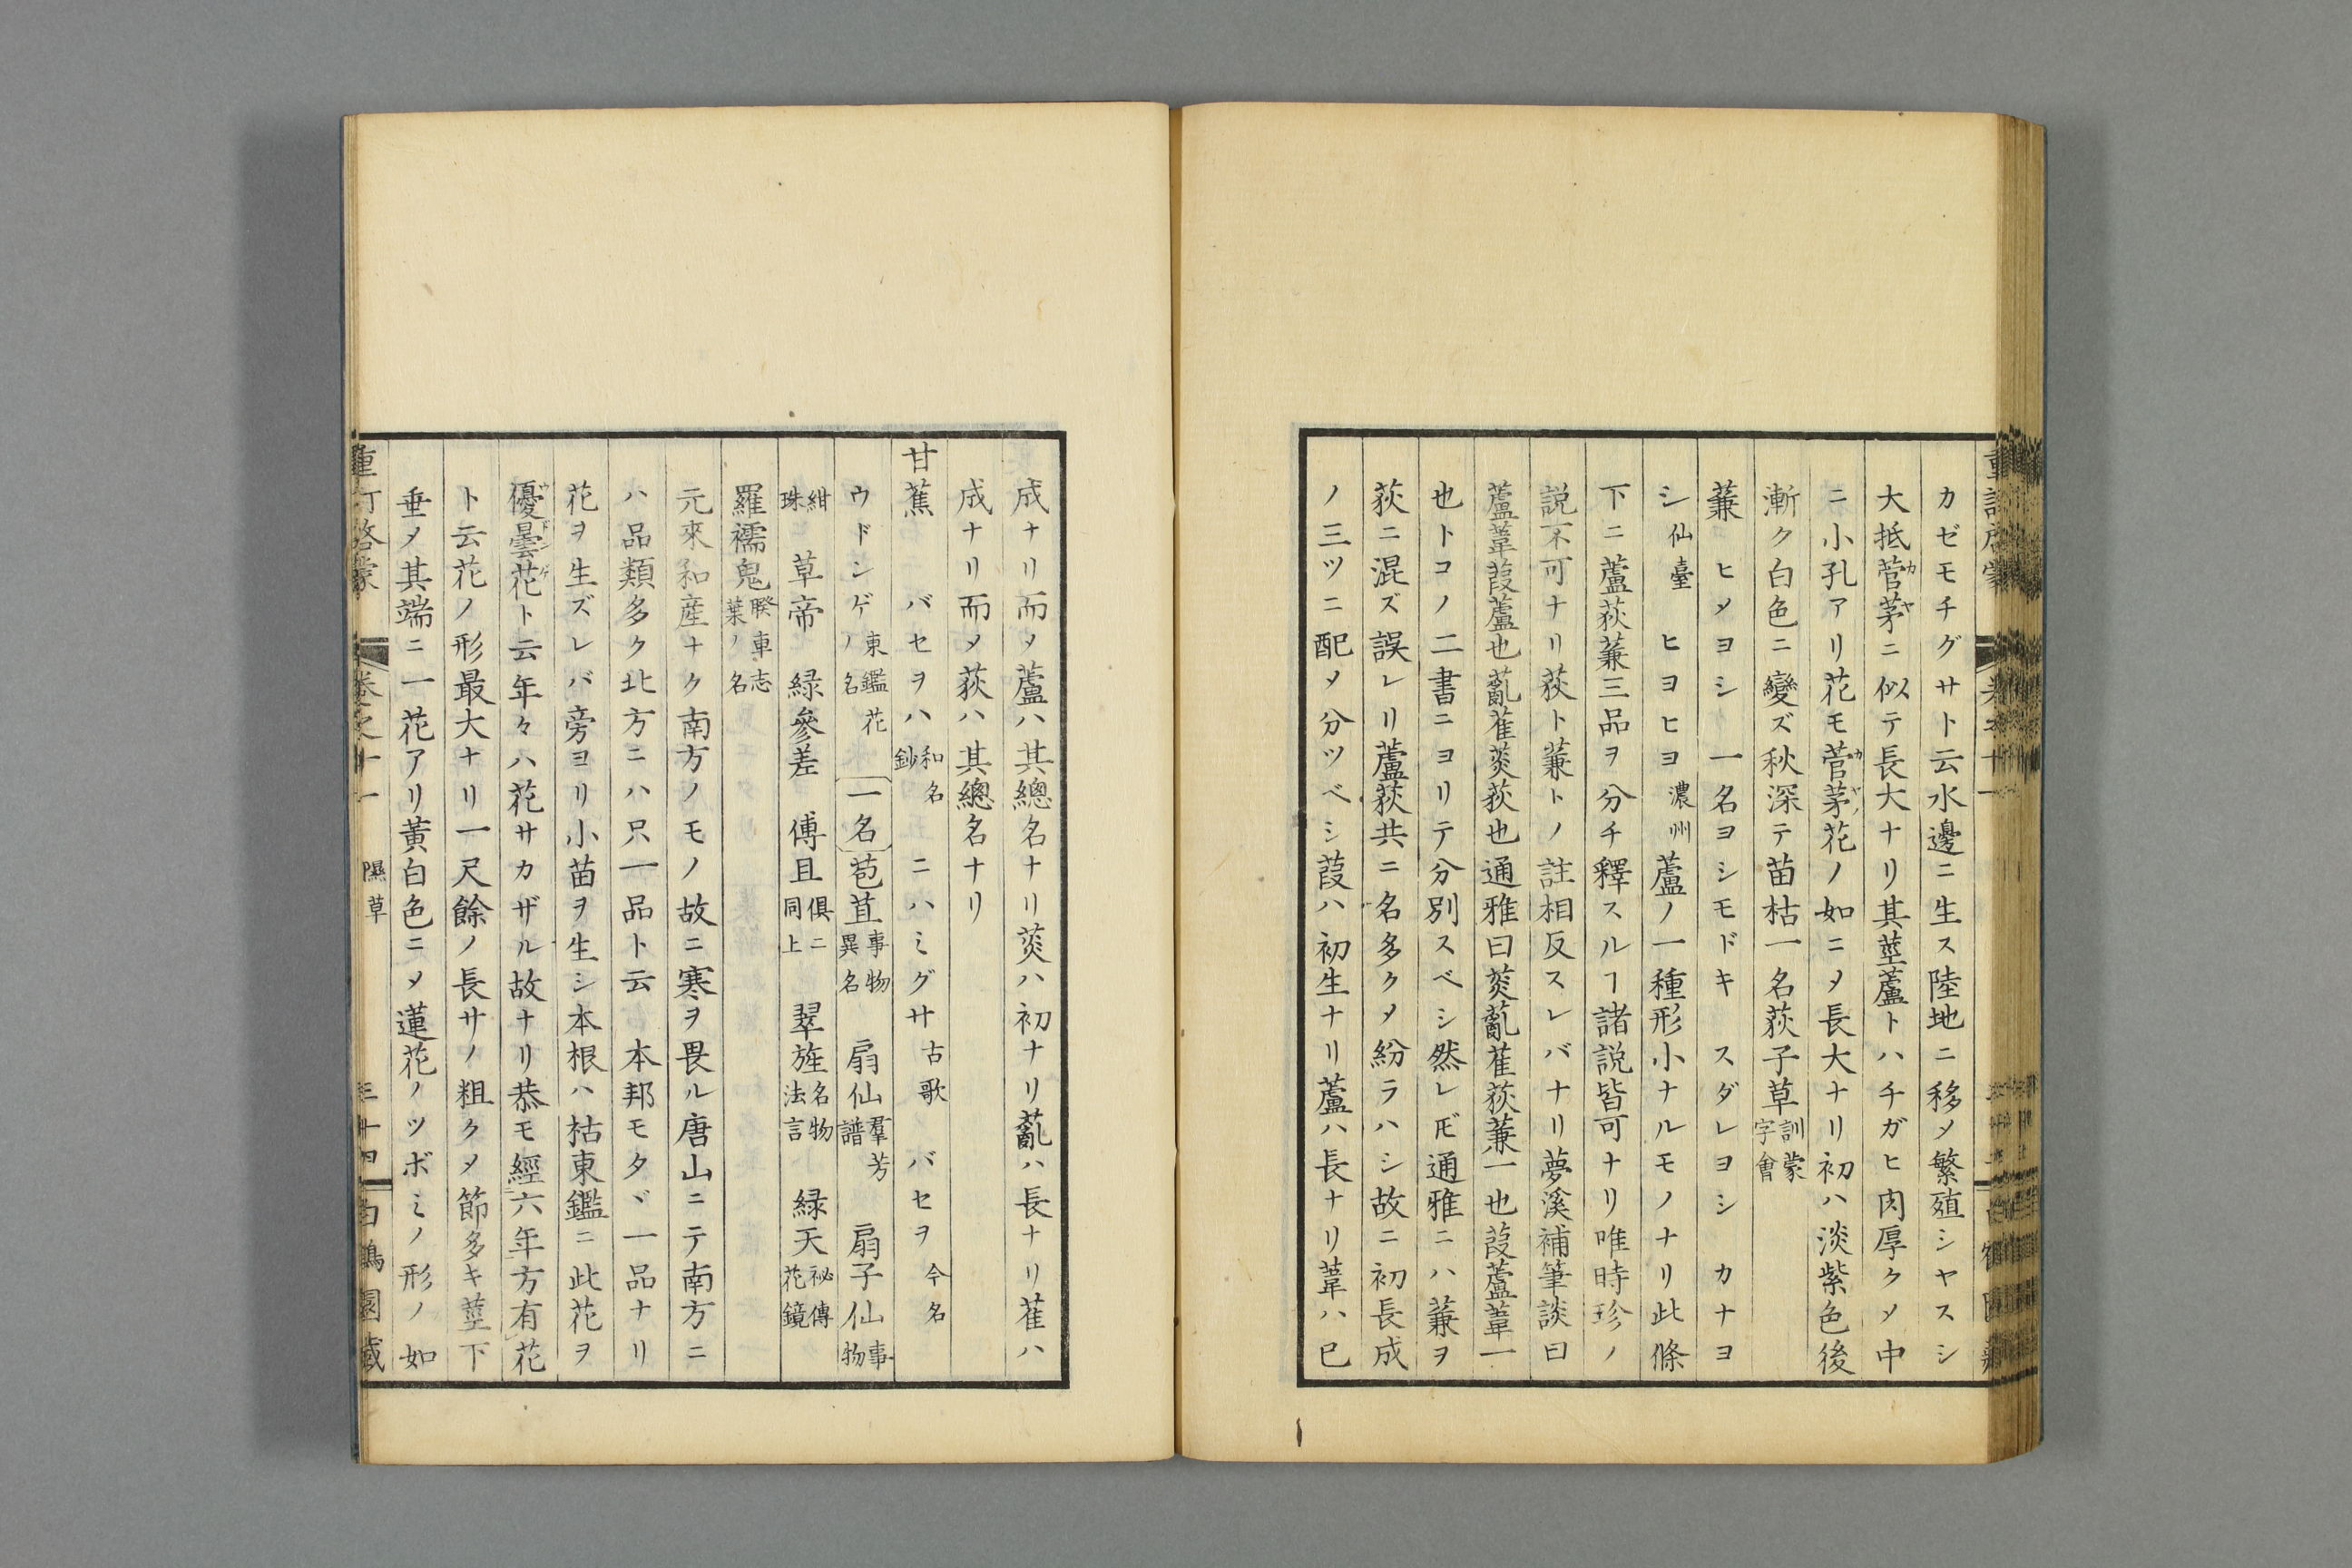 カゼモチグサト云水邊ニ生ス陸地ニ移メ繁殖シヤスシ
大抵菅茅ニ似テ長大ナリ其莖蘆トハチガヒ肉厚クメ中
ニ小孔アリ花モ菅茅花ノ如ニメ長大ナリ初ハ淡紫色後
漸ク白色ニ變ズ秋深テ苗枯一名荻子草訓蒙字會
蒹 ヒメヨシ 一名ヨシモドキ スダレヨシ カナヨ
シ仙臺 ヒヨヒヨ濃州蘆ノ一種形小ナルモノナリ此條
下ニ蘆荻蒹三品ヲ分チ釋スルヿ諸説皆可ナリ唯時珍ノ
説不可ナリ荻ト蒹トノ註相反スレバナリ夢溪補筆談曰
蘆葦葭蘆也薍萑菼荻也通雅曰菼薍萑荻蒹一也葭蘆葦一
也トコノ二書ニヨリテ分別スベシ然レ𪜈通雅ニハ蒹ヲ
荻ニ混ズ誤レリ蘆荻共ニ名多クメ紛ラハシ故ニ初長成
ノ三ツニ配メ分ツベシ葭ハ初生ナリ蘆ハ長ナリ葦ハ已
成ナリ而メ蘆ハ其總名ナリ菼ハ初ナリ薍ハ長ナリ萑ハ
成ナリ而メ荻ハ其總名ナリ
甘蕉 バセヲハ和名鈔 ニハミグサ古歌 バセヲ今名
ウドンゲ東鑑花ノ名 一名 苞苴事物異名 扇仙羣芳譜 扇子仙事物
紺珠 草帝 緑參差 傅且俱ニ同上 翠旌名物法言 緑天祕傳花鏡
羅襦鬼睽車志葉ノ名
元來和産ナク南方ノモノ故ニ寒ヲ畏ル唐山ニテ南方ニ
ハ品類多ク北方ニハ只一品ト云 本邦モタヾ一品ナリ
花ヲ生ズレバ旁ヨリ小苗ヲ生シ本根ハ枯東鑑ニ此花ヲ
優曇花ト云年々ハ花サカザル故ナリ恭モ經六年方有花
ト云花ノ形最大ナリ一尺餘ノ長サノ粗クメ節多キ莖下
垂メ其端ニ一花アリ黃白色ニメ蓮花ノツボミノ形ノ如
重訂啓蒙 卷之十一 隰草 三十四 白鶴園藏